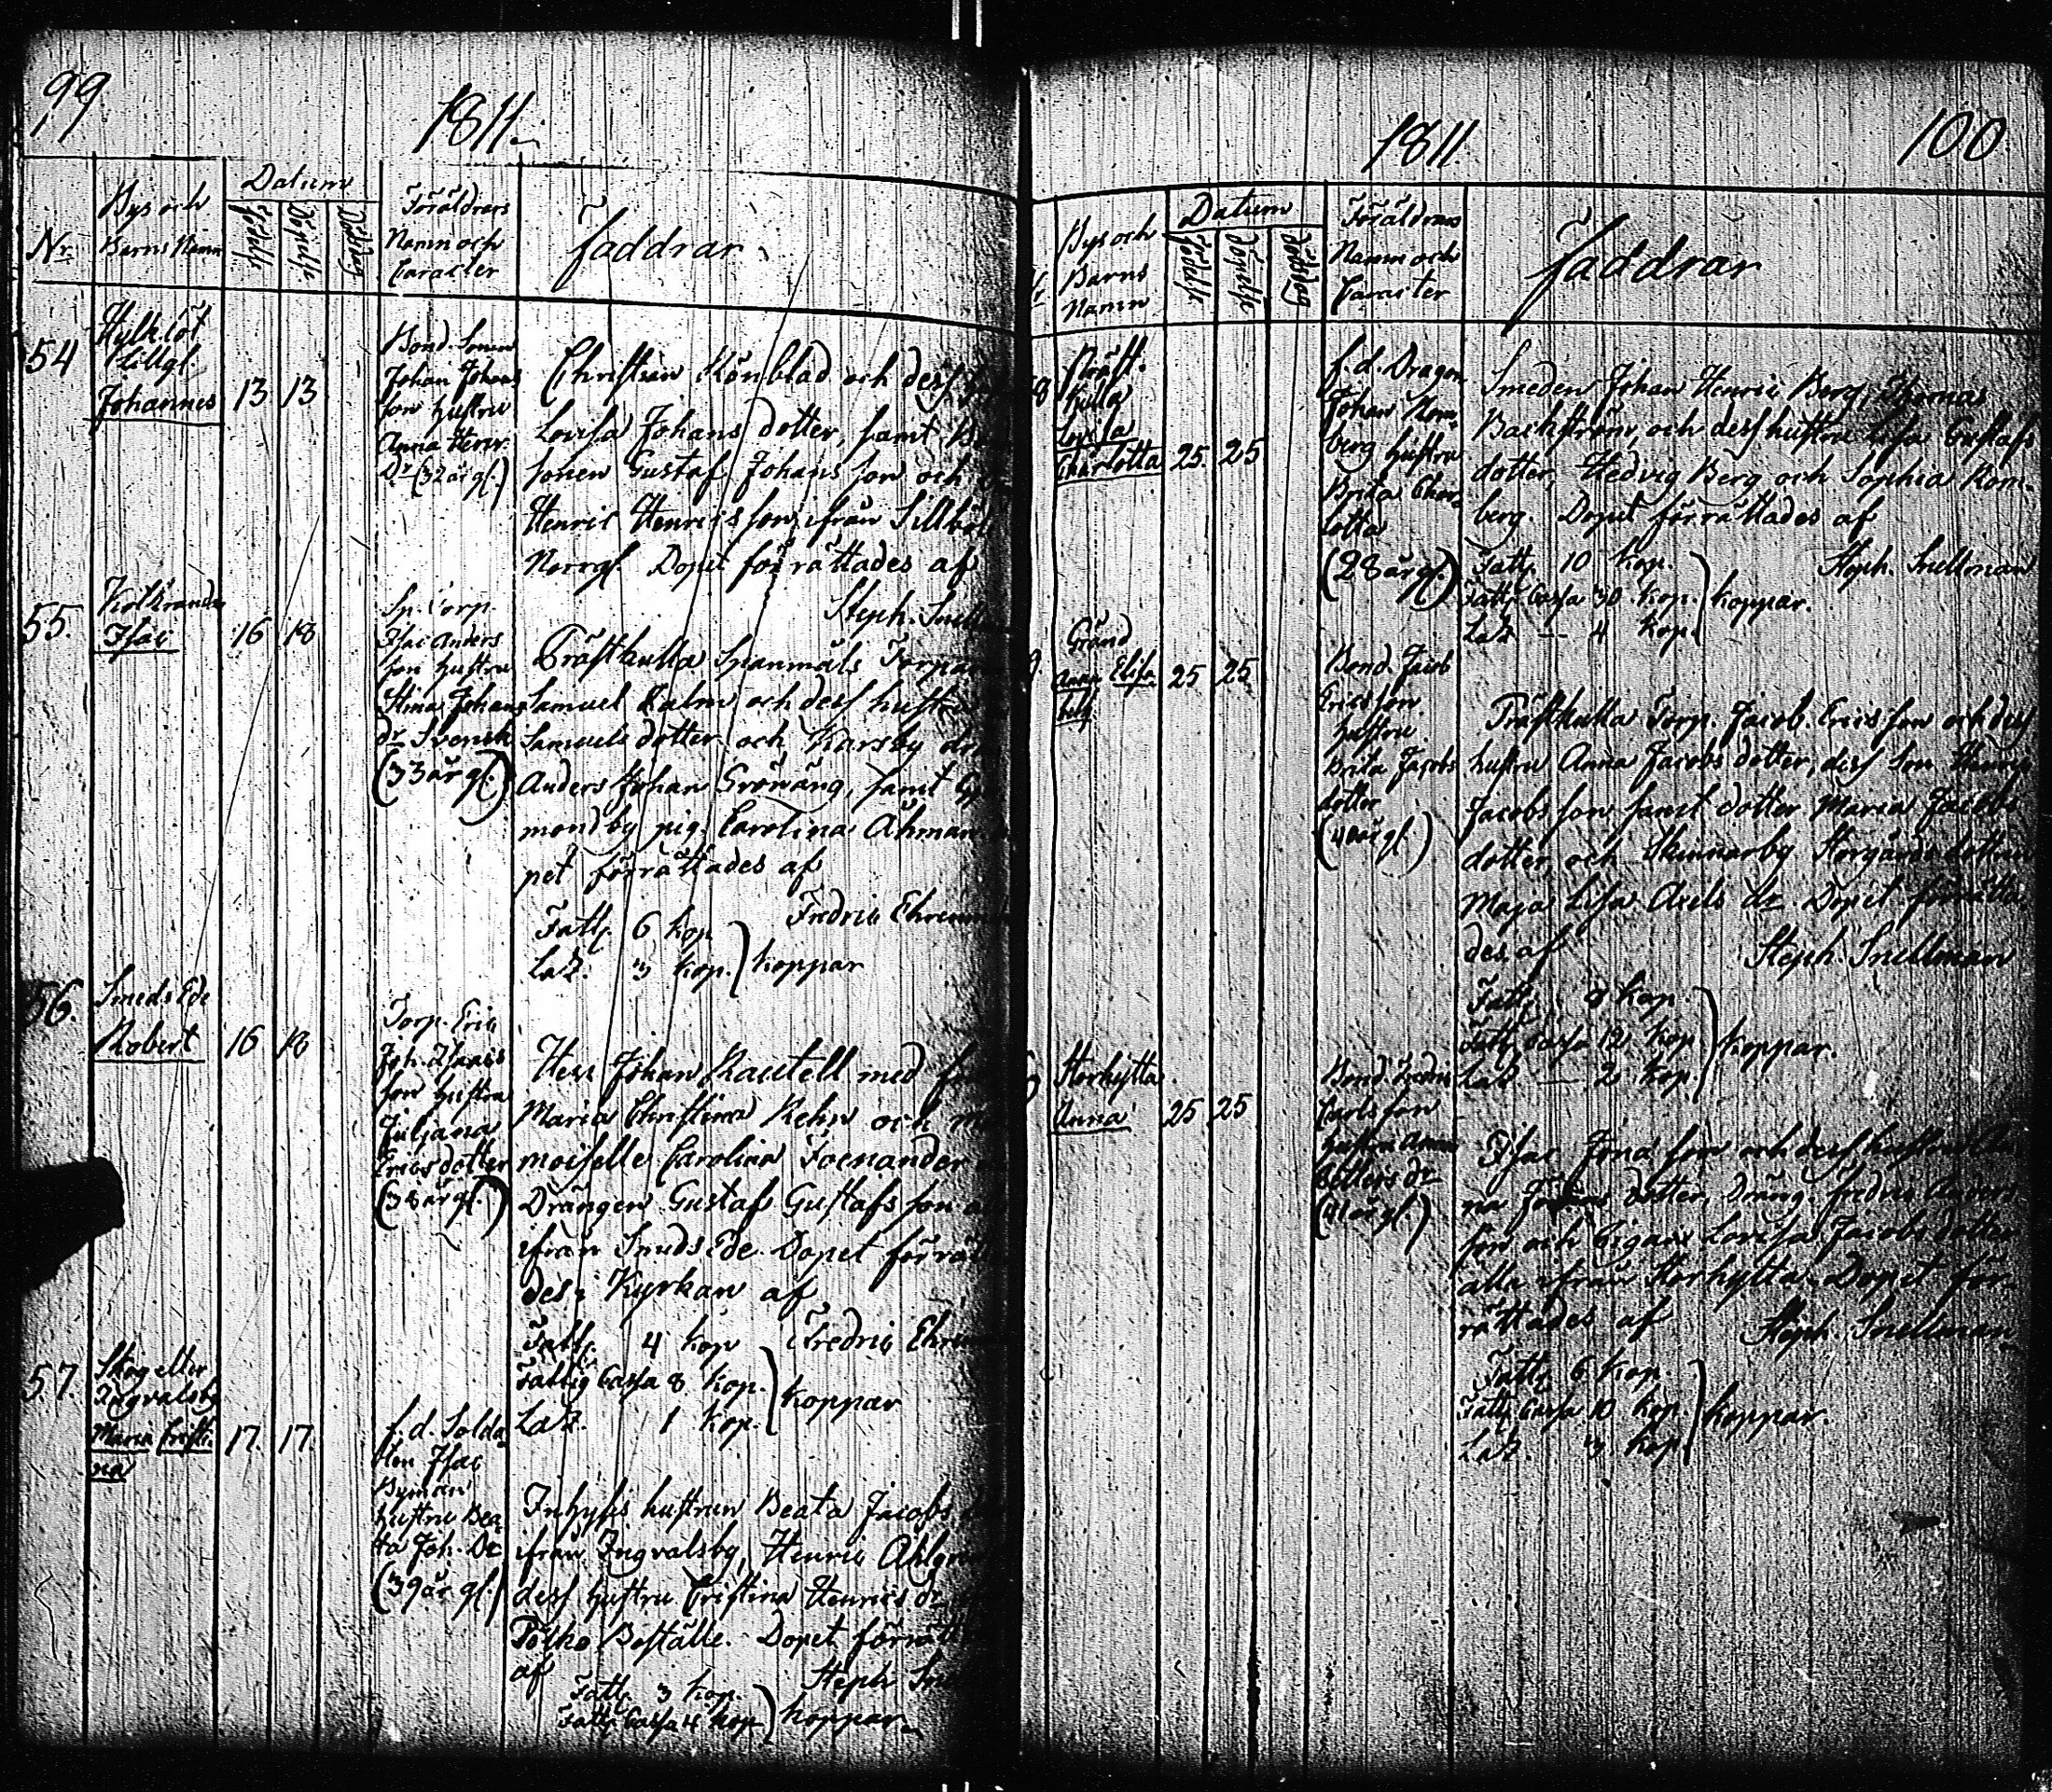 99
1811
Nr
Bys och
Barns Namn
Datum
Födelse
Döpelse
Dödsdag
Föräldrars
Namn och
Caracter
Faddrar
54
Lillgl.
Johannes
13
13
Bond. Sonen
Johan Johans
son hustru
Anna Henr.
Dr (32 år gl.)
Christian Könblad och dess
Lovisa Johans dotter, samt
sonen Gustaf Johans son och
Henric Henrics son, ifrån
Norrgl. Dopet förrättades af
Steph.
55.
Isac
16
18
Sp. Corp.
Isac Anders
son hustru
Stina Johans
dr Svensk
(33 år gl.)
Prästkulla
Samuel Malm och dess hustru
Samuels dotter och Karsby
Anders Johan Grönäng, samt
mondby pig. Carolina Åhman
pet förrättades af
Fredric
Fatt. 6 kop
Laz. 3 kop.
koppar
56.
Smeds Ede
Robert
16
18
Torp. Eric
Joh. Isaacs
son hustru
Juljana
Erics dotter
(38 år gl.)
Herr Johan Rautell med
Maria Christina Rehn och
moiselle Carolina Fornander
Drängen Gustaf Gustafs son
ifrån Smeds Ede. Dopet
des i Kyrkan af
Fatt. 4 kop
Fredric
Fattig Cassa 8 kop.
Laz. 1 kop.
koppar
57.
Skog eller
Ingvalsby
Maria Cristi
na
17.
17.
f.d. Solda
ten Isac
Byman
hustru Bea
ta Joh. Dr
(39 år gl.)
Inhyses hustrun Beata Jacobs
ifrån Ingvalsby, Henric
dess hustru Cristina Henrics dr
Boställe. Dopet
af
Steph
Fatt. 3 kop.
Fatt. Cassa 4 kop
koppar
1811.
100
Bys och
Barns
Namn
Datum
Födelse
Döpelse
Dödsdag
Föräldrars
Namn och
Caracter
Faddrar
8
Präst
kulla
Lovisa
Charlotta
25.
25
f.d. Dragon
Johan Rom
berg hustru
Brita Char
lotta
(28 år gl.)
Smeden Johan Henric Berg, Thomas
Backström, och dess hustru Lisa Gustafs
dotter, Hedvig Berg och Sophia Rom
berg. Dopet förrättades af
Steph. Snellman
Fatt. 10 kop.
Fatt. Cassa 30 kop.
Laz — 4 kop.
koppar.
Gränd
Anna Elisa
bet
25
25
Bond. Jacob
Erics son
hustru
Brita Jacobs
dotter
(40 år gl.)
Prästkulla Torp. Jacob Erics son och dess
hustru Anna Jacobs dotter, dess Son
Jacobs son samt dotter Maria Jacobs
dotter, och Skinnarby Storgårds dottern
Maja Lisa Axels dr. Dopet förrätta
des af
Steph. Snellman
Fatt. 8 kop.
Fatt. Cassa 12 kop
Laz — 2 kop.
koppar.
Storhytta
Anna
25
25
Bond. Fredric
Carls son
hustru Anna
(41 år gl.)
Isac Jona son och dess hustru An
na dotter, Dräng. Fredric Anders
son och Pigan Lovisa Jacobs dotter
alla ifrån Storhytta. Dopet för
rättades af
Steph. Snellman
Fatt. 6 kop.
Fatt. Cassa 10 kop.
Laz. 3 kop.
koppar.